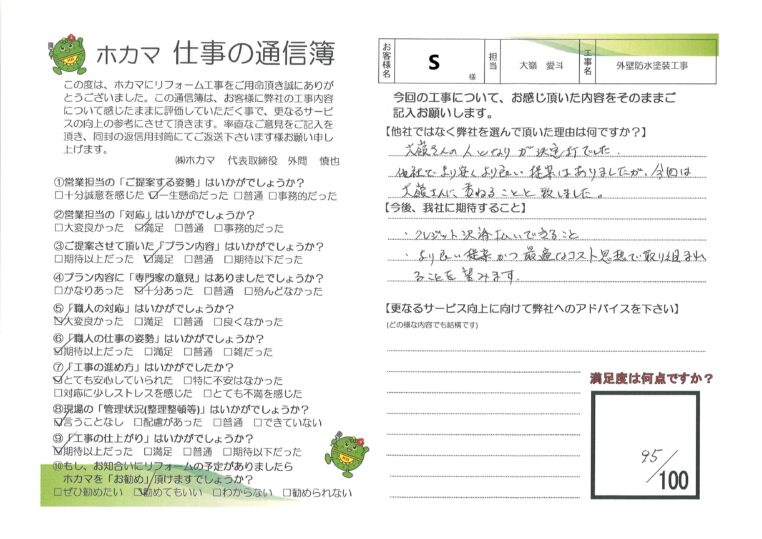 ホカマ 仕事の通信簿
この度は、ホカマにリフォーム工事をご用命頂き誠にありが
とうございました。この通信簿は、お客様に弊社の工事内容
について感じたままに評価していただく事で、更なるサービ
スの向上の参考にさせて頂きます。率直なご意見をご記入を
頂き、同封の返信用封筒にてご返送下さいます様お願い申し
上げます。
㈱ホカマ 代表取締役 外間 慎也
①営業担当の「ご提案する姿勢」はいかがでしょうか?
□十分誠意を感じた ☑一生懸命だった □普通 □事務的だった
②営業担当の「対応」はいかがでしょうか?
□大変良かった ☑満足 □普通 □事務的だった
③ご提案させて頂いた「プラン内容」はいかがでしょうか?
□期待以上だった ☑満足 □普通 □期待以下だった
④プラン内容に「専門家の意見」はありましたでしょうか?
□かなりあった ☑十分あった □普通 □殆んどなかった
⑤「職人の対応」はいかがでしょうか?
☑大変良かった □満足 □普通 □良くなかった
⑥「職人の仕事の姿勢」はいかがでしょうか?
☑期待以上だった □満足 □普通 □雑だった
⑦「工事の進め方」はいかがでしたか?
☑とても安心していられた □特に不安はなかった
□対応に少しストレスを感じた □とても不満を感じた
⑧現場の「管理状況(整理整頓等)」はいかがでしょうか?
☑言うことなし □配慮があった □普通 □できていない
⑨「工事の仕上がり」はいかがでしょうか?
☑期待以上だった □満足 □普通 □期待以下だった
⑩もし、お知合いにリフォームの予定がありましたら
ホカマを「お勧め」頂けますでしょうか?
□ぜひ勧めたい ☑勧めてもいい □わからない □勧められない
お客様名 S 様 担当 大嶺 愛斗 工事名 外壁防水塗装工事
今回の工事について、お感じ頂いた内容をそのままご
記入お願いします。
【他社ではなく弊社を選んで頂いた理由は何ですか?】
大嶺さんの人となりが決定打でした。
他社でより安くより良い提案はありましたが、今回は
大嶺さんに委ねることと致しました。
【今後、我社に期待すること】
・クレジット決済払いできること
・より良い提案かつ最適なコスト思想で取り組まれ
ることを望みます。
【更なるサービス向上に向けて弊社へのアドバイスを下さい】
(どの様な内容でも結構です)
満足度は何点ですか?
95/100